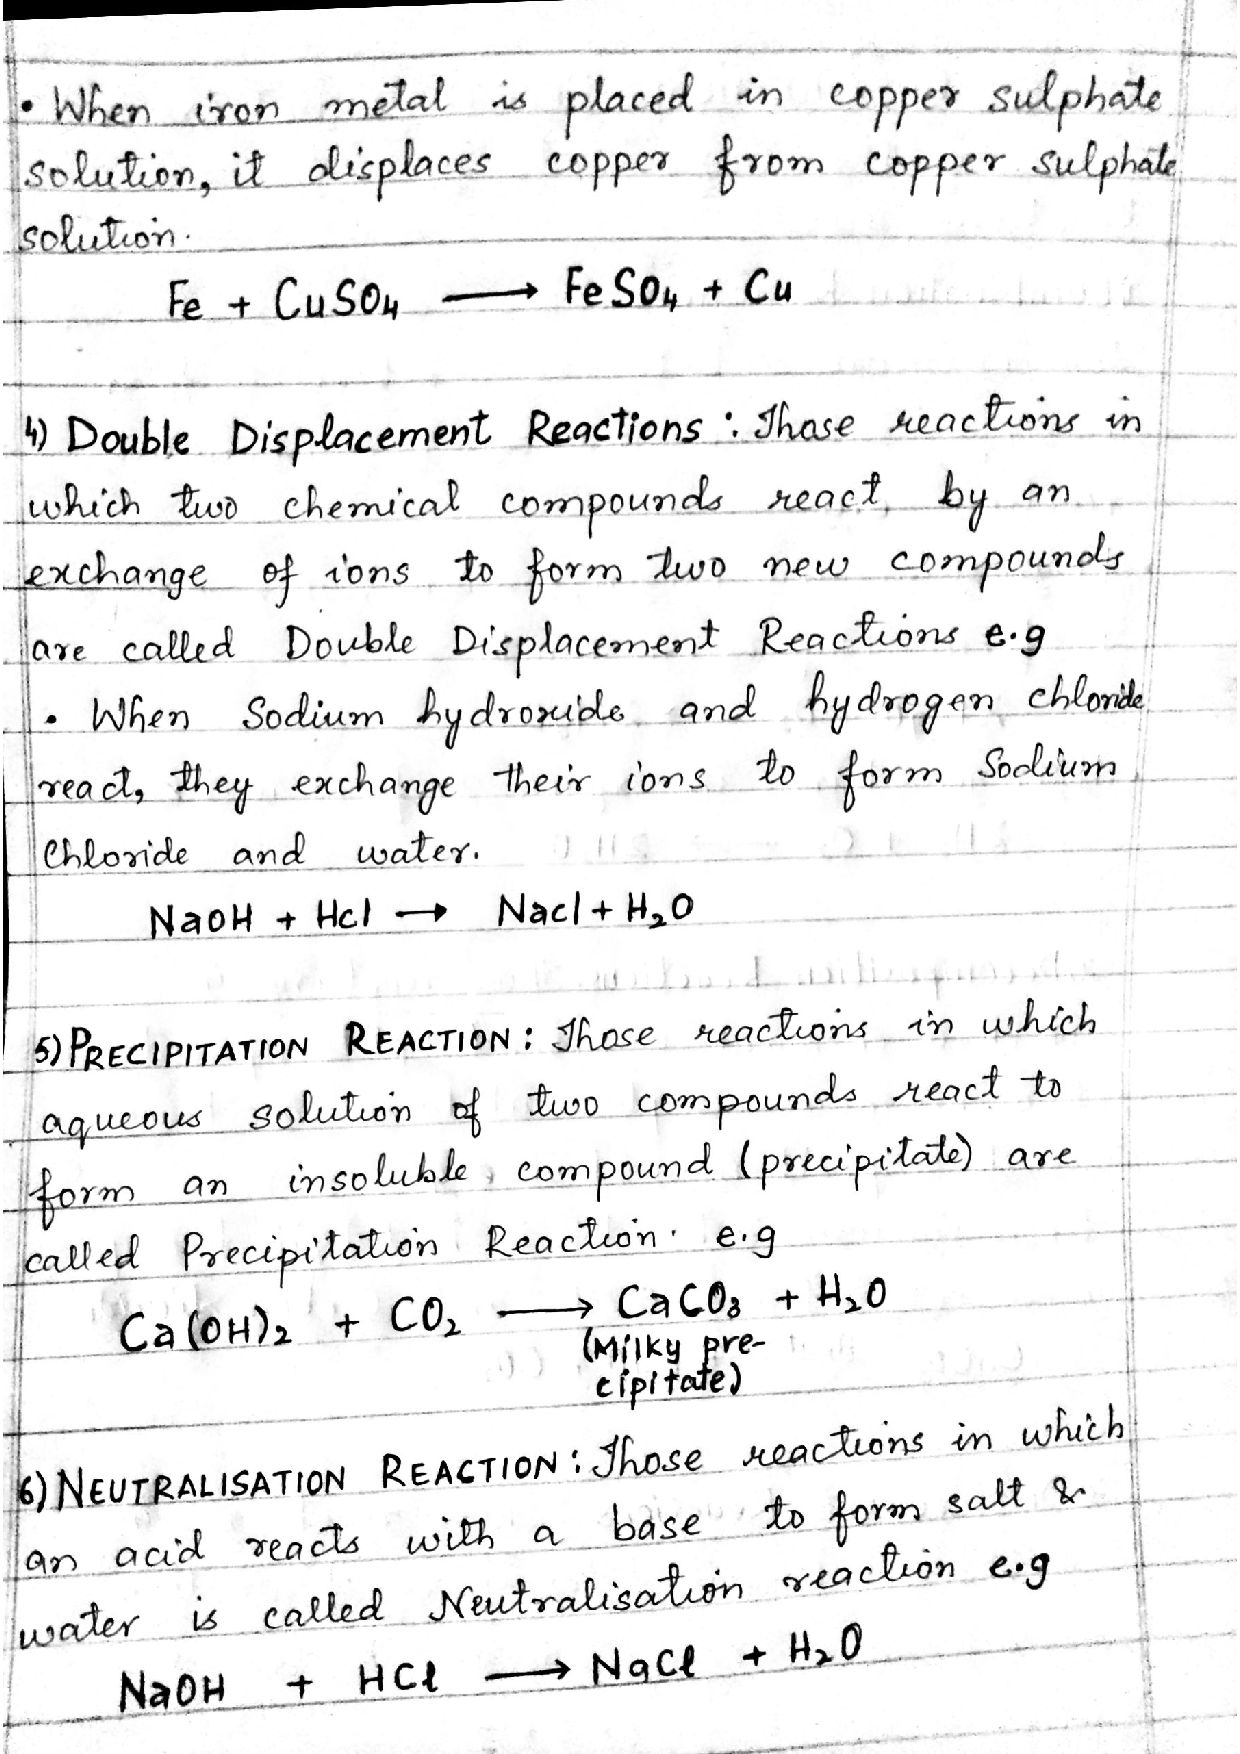 • When iron metal is placed in copper sulphate
solution, it displaces copper from copper sulphate
solution.
Fe + CuSO₄ ⟶ FeSO₄ + Cu
4) Double Displacement Reactions : Those reactions in
which two chemical compounds react by an
exchange of ions to form two new compounds
are called Double Displacement Reactions e.g
• When Sodium hydroxide and hydrogen chloride
react, they exchange their ions to form Sodium
Chloride and water.
NaOH + Hcl → Nacl + H₂O
5) PRECIPITATION REACTION : Those reactions in which
aqueous solution of two compounds react to
form an insoluble compound (precipitate) are
called Precipitation Reaction. e.g
Ca(OH)₂ + CO₂ ⟶ CaCO₃ + H₂O
(Milky pre-
cipitate)
6) NEUTRALISATION REACTION : Those reactions in which
an acid reacts with a base to form salt &
water is called Neutralisation reaction e.g
NaOH + HCl ⟶ NaCl + H₂O